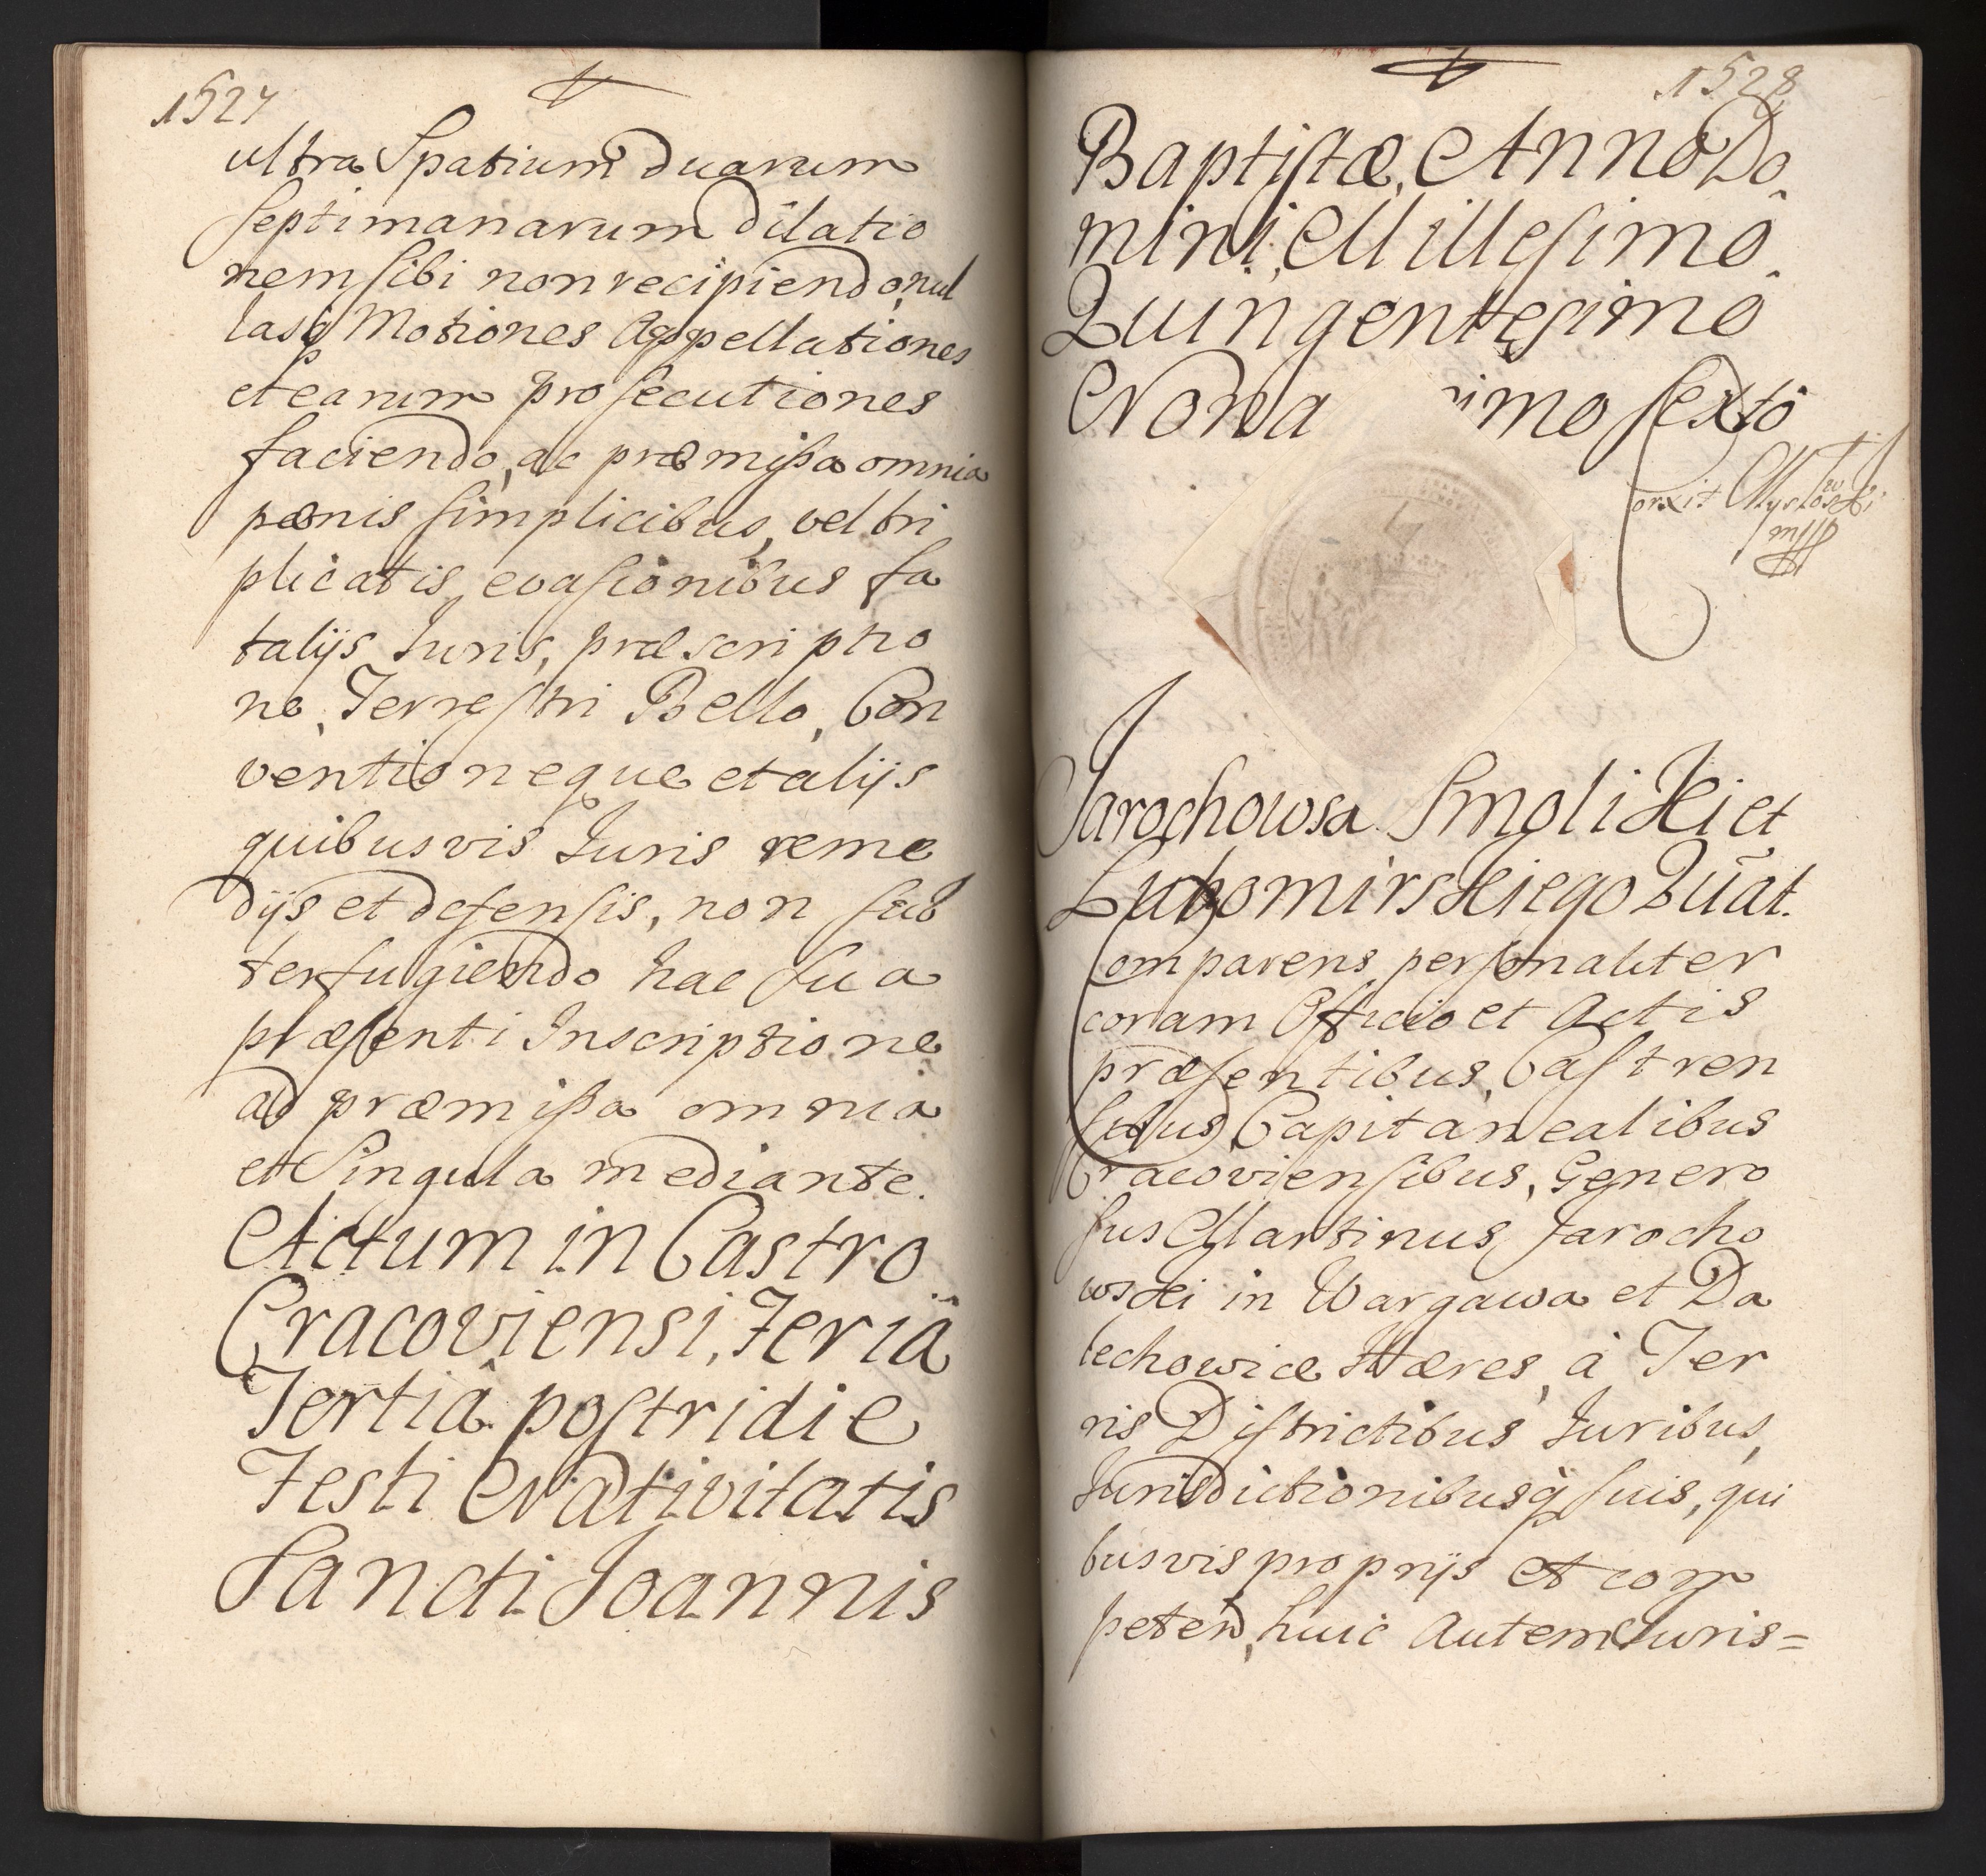 1527
ultra Spatium duarum
septimanarum dilatio
nem sibi non recipiendo, nul
lasq Motiones Appellationes
et earum prosecutiones
faciendo, ac præmißa omnia
pœnis simplicibus, vel tri
plicatis, evasionibus fa
talijs Iuris, præscriptio
ne, Terrestri Bello, Con
ventioneque et alijs
quibusvis Iuris reme
dijs et defensis, non sub
terfugiendo hac sua
præsenti Inscriptione
ad præmißa omnia
et Singula mediante.
Actum in Castro
Cracoviensi, Feriâ
Tertiâ postridie
Festi Nativitatis
Sancti Joannis
1528
Baptistæ, Anno Do
mini, Millesimô
Quingentesimô
Nona imo sextô
Jarochowsa Smolikki et
Lubomirskiego Quat.
Comparens personaliter
coram Officio et Actis
præsentibus, Castren
sibus Capitanealibus
Cracoviensibus, Genero
sus Martinus Jarocho
wski in Wargawa et Da
lechowicæ Hæres, à Ter
ris Districtibus Iuribus,
Iurisdictionibusq suis, qui
busvis proprijs et com
peten, huic autem Iuris=